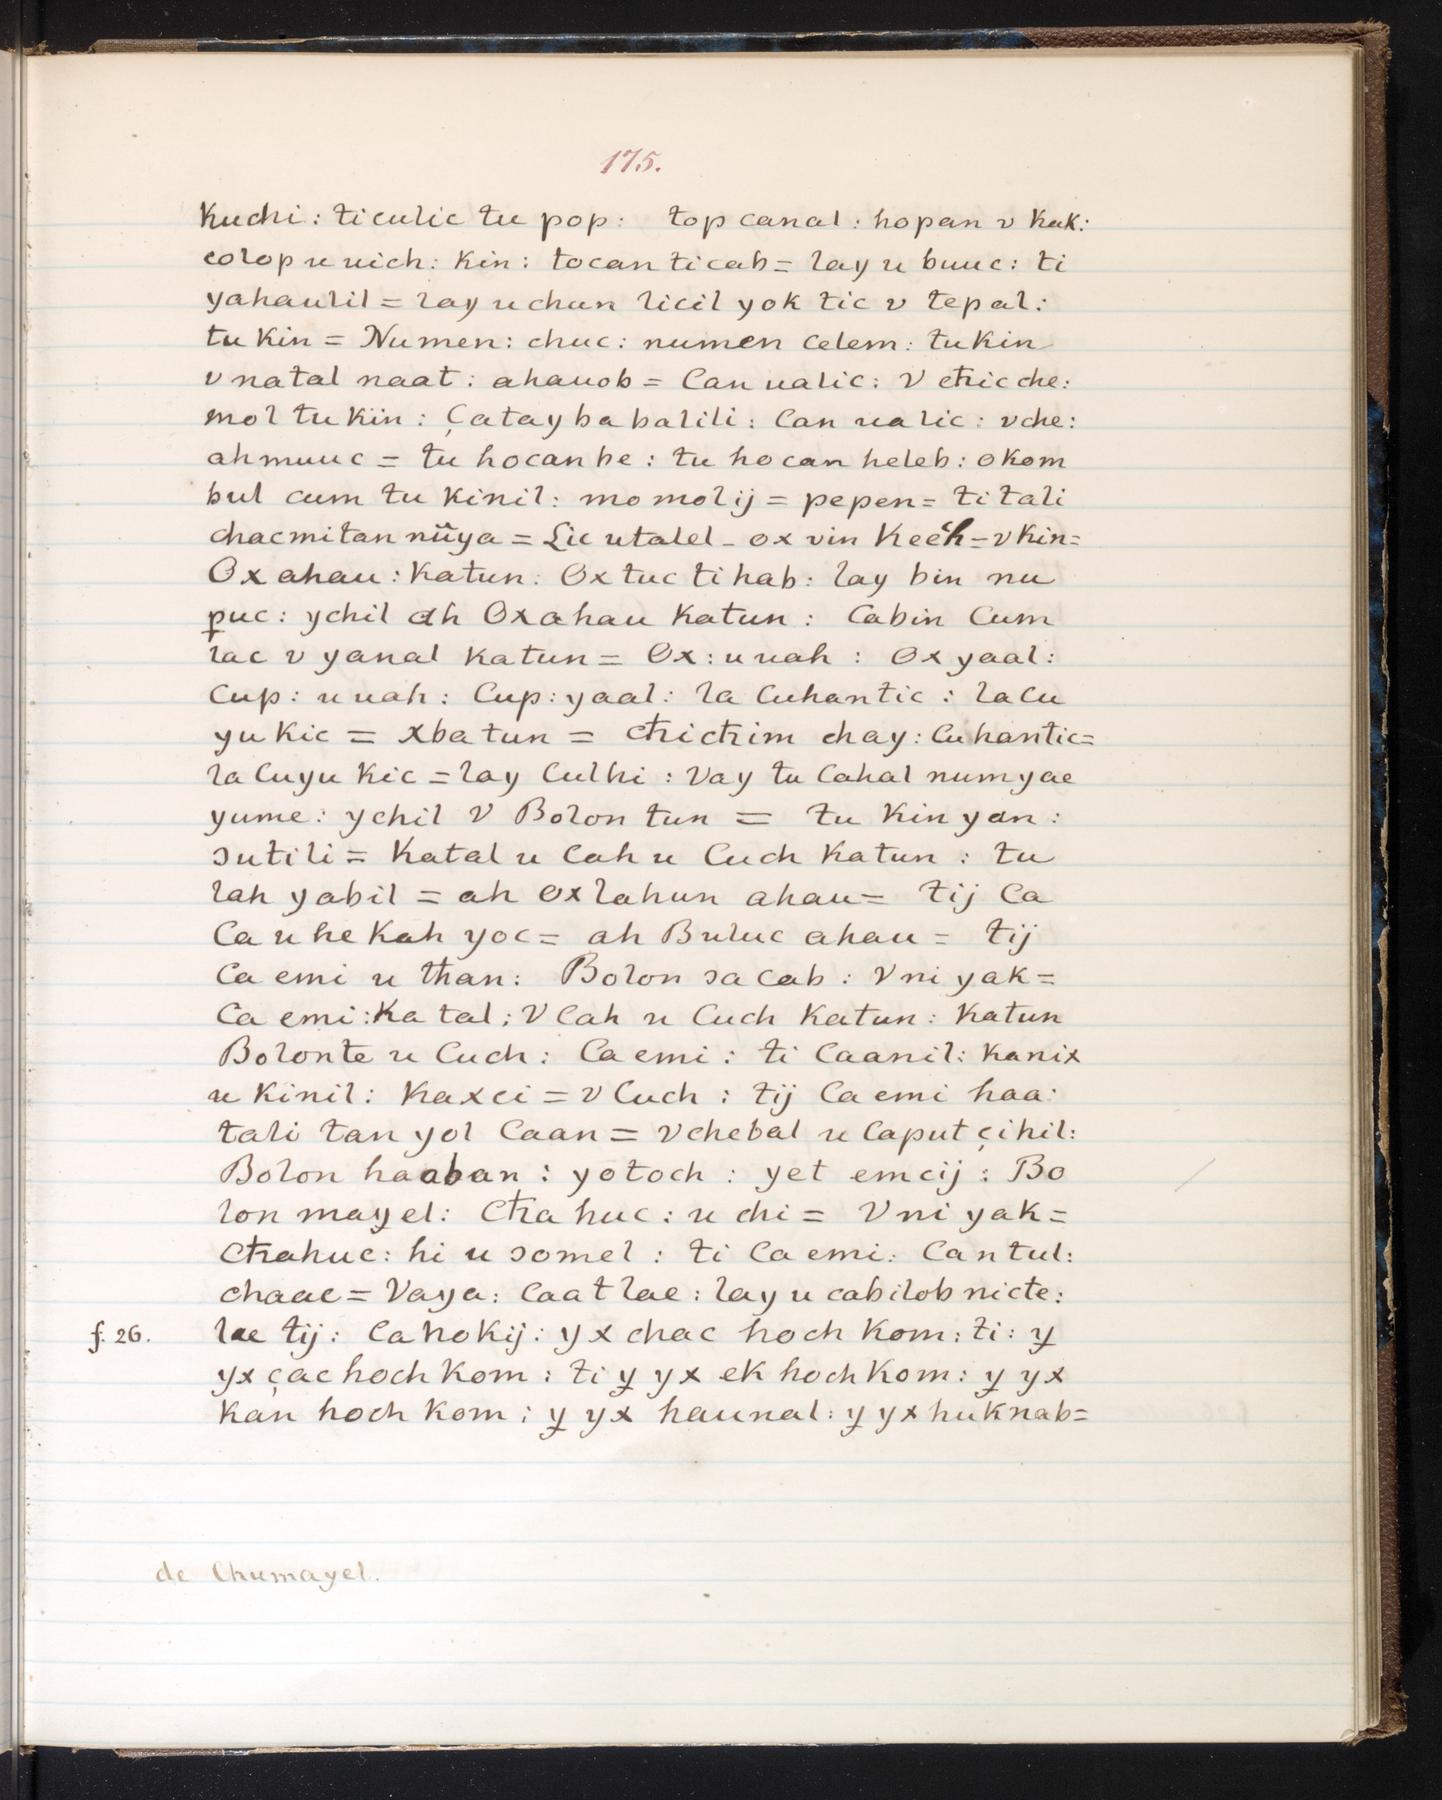 175.
Kuchi: ticulic tu pop: top canal: hopan v Kak:
colop u uich: Kin: tocan ticab= lay u buuc: ti
yahaulil = lay uchun licil yok tic v tepal:
tu Kin = Numen: chuc: numen celem: tukin
v natal naat: ahauob = Can ualic: V cħic che:
mol tu kin: Çatay ba balili: Can ualic: vche:
ahmuuc = tu hocan be: tu ho can heleb: okom
bul cum tu kinil: mo molij = pepen= ti tali
chacmitan niiya = Lic utalel - ox vin Keeh=vKin=
Ox ahau: Katun: Ox tuc ti hab: lay bin nu
puc: ychil ah Oxahau Katun: Cabin Cum
lac v yanal Katun= Ox: u uah: Ox yaal:
Cup: u uah: Cup: yaal: la Cuhantic: la Cu
yu Kic = xba tun = cħicħim chay: Cuhantic=
la Cuyu Kic = lay Culhi: Vay tu Cahal numyae
yume: ychil V Bolon tun = tu Kin yan:
sutili= Katal u Cah u Cuch Katun: tu
lah yabil = ah oxlahun ahau= tij Ca
Ca u he Kah yoc= ah Buluc ahau= tij
Ca emi u than: Bolon ɔa cab: Vni yak=
Ca emi:Ka tal; V Cah u Cuch Katun: Katun
Bolonte u Cuch: Ca emi: ti Caanil: Kanix
u Kinil: Kaxci = v Cuch: tij Ca emi haa:
tali tan yol Caan = Vchebal u Caput çihil:
Bolon haaban: yotoch: yet emcij: Bo
lon mayel: Cħa huc: u chi = Vni yak=
Cħahuc: hi u ɔomel: ti Ca emi: Can tul:
chaac= Vaya: Caat lae: lay u cabilob nicte:
f. 26. lae tij: Ca hokij: yx chac hoch Kom: ti: y̱
yx çac hoch Kom: ti y̱ yx ek hoch Kom: y̱ yx
Kan hoch Kom; y̱ yx haunal: y̱ yx huknab=
de Chumayel.